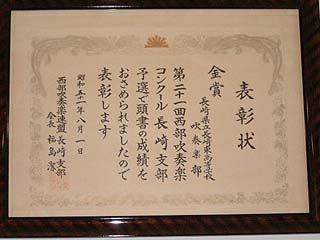 表彰状
金賞
長崎県立長崎東高等学校
吹奏楽部
第二十一回西部吹奏楽
コンクール長崎支部
予選で頭書の成績を
おさめられましたので
表彰します
昭和五一年八月一日
西部吹奏楽連盟長崎支部
会長 福島